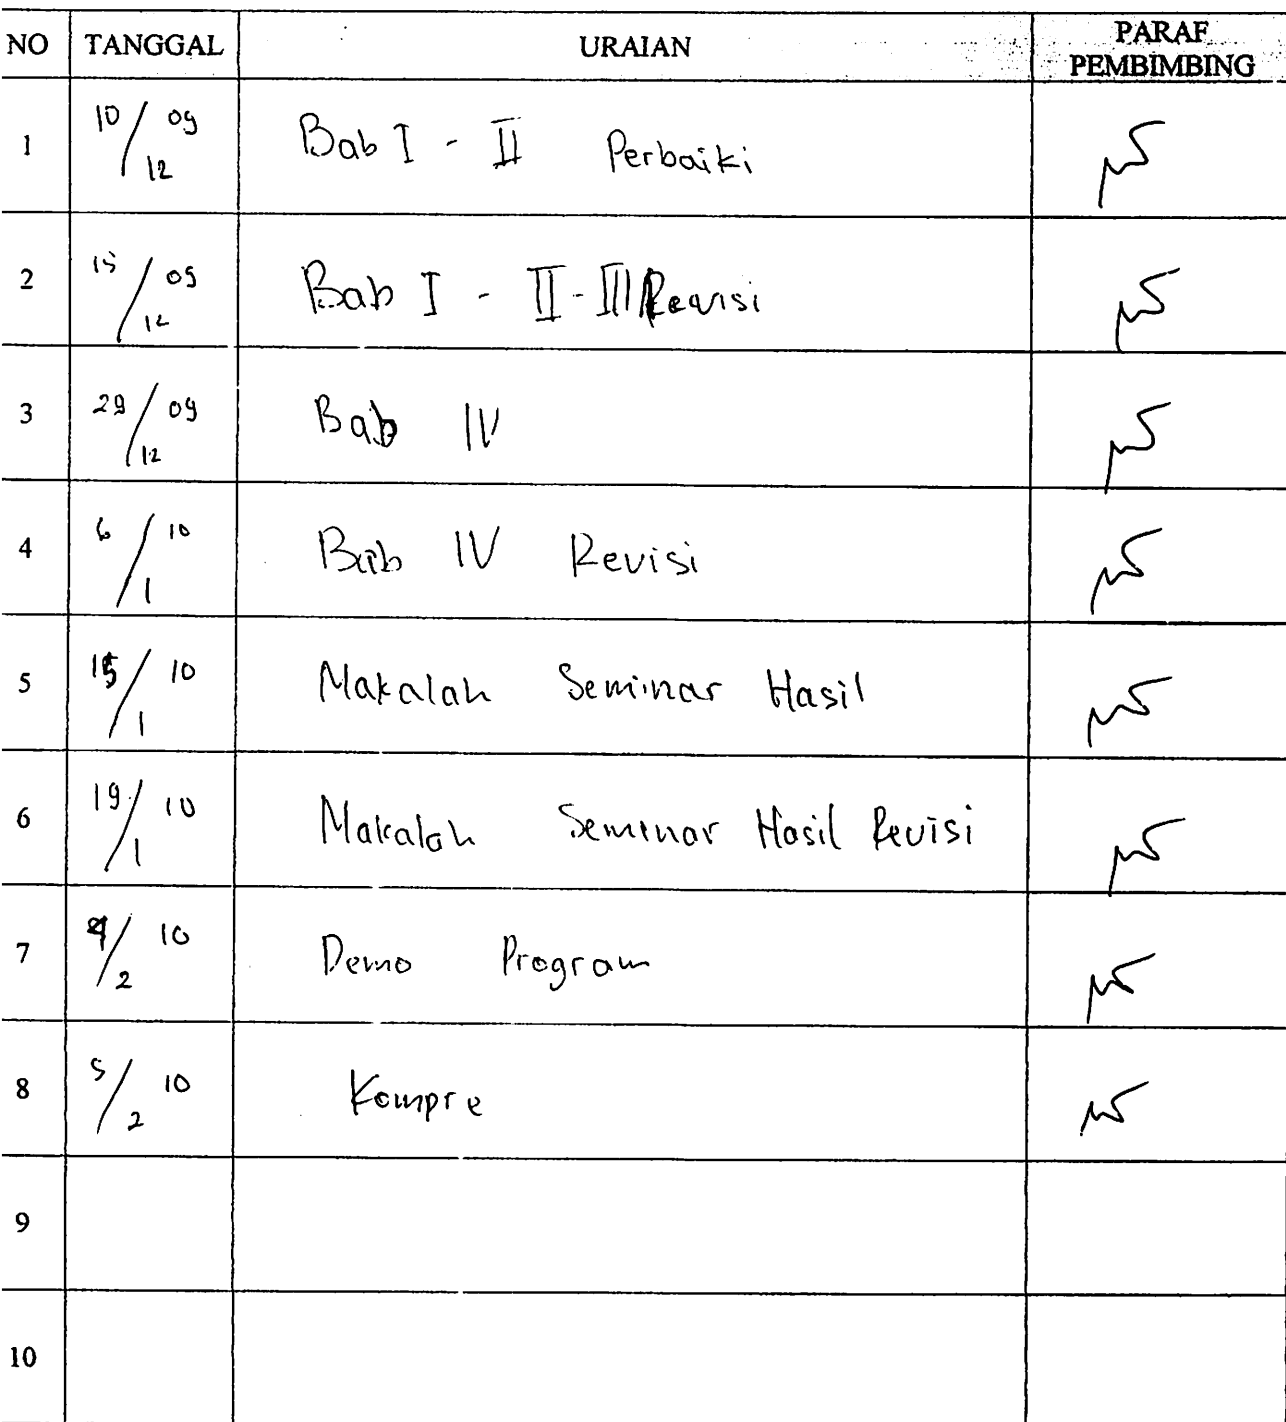 NO TANGGAL URAIAN PARAF PEMBIMBING
1 10/12 09 Bab I - II Perbaiki
2 15/12 09 Bab I - II - III Revisi
3 29/12 09 Bab IV
4 6/1 10 Bab IV Revisi
5 15/1 10 Makalah Seminar Hasil
6 19/1 10 Makalah Seminar Hasil Revisi
7 4/2 10 Demo Program
8 5/2 10 Kompre
9
10